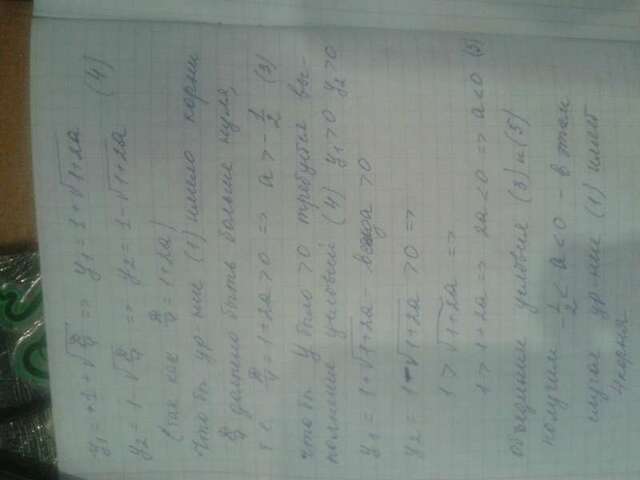 y₁ = +1 + √(D/4) => y₁ = 1 + √(1+2a)
y₂ = 1 - √(D/4) => y₂ = 1 - √(1+2a) (4)
(так как D/4 = 1+2a)
Чтобы ур-ние (1) имело корни
D/4 должно быть больше нуля,
т.е. D/4 = 1+2a > 0 => a > -1/2 (3)
Чтобы y было > 0 требуется вы-
полнение условий (4) y₁>0 y₂>0
y₁ = 1 + √(1+2a) - всегда > 0
y₂ = 1 - √(1+2a) > 0 =>
1 > √(1+2a) =>
1 > 1+2a => 2a < 0 => a < 0 (5)
Объединим условия (3) и (5)
получим -1/2 < a < 0 - в этом
случае ур-ние (1) имеет
4 корня